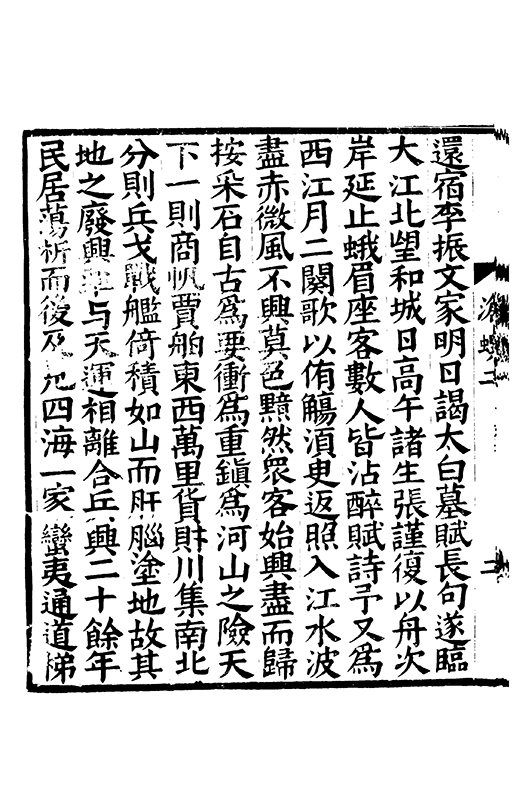 還宿李振文家明日謁太白墓賦長句遂臨
大江北望和城日高午諸生張謹復以舟次
岸延止蛾眉座客數人皆沾醉賦詩予又為
西江月二闋歌以侑觴湏史返照入江水波
盡赤微風不興莫色黯然衆客始興盡而歸
按采石自古為要衝為重鎮為河山之險天
下一則商帆賈舶東西萬里貨財川集南北
分則兵戈戰艦倚積如山而肝腦塗地故其
地之廢興與天運相離合兵興二十餘年
民居蕩析而後四海一家蠻夷通道梯
二
二